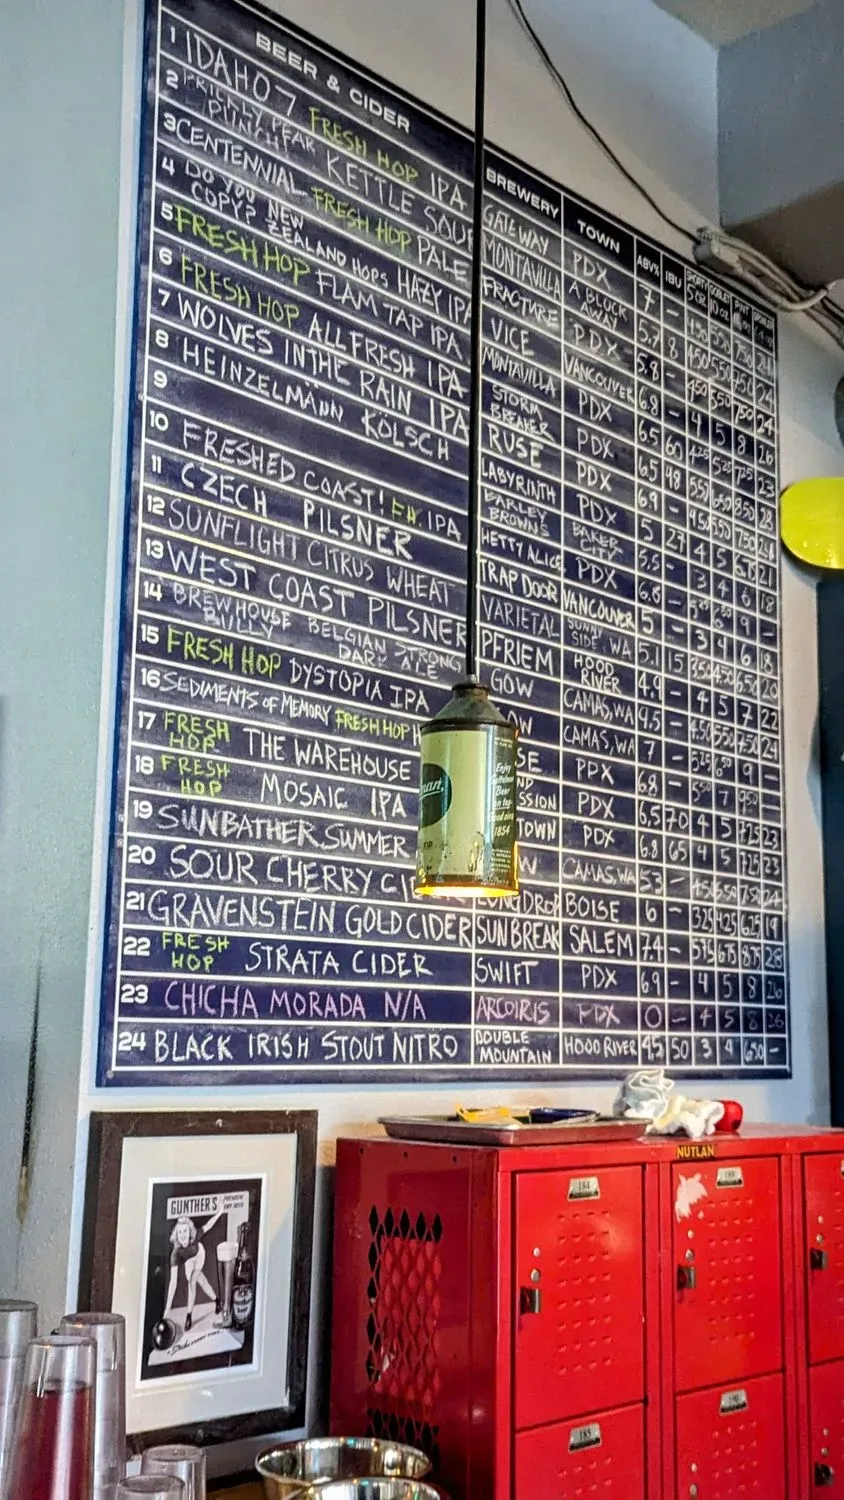 BEER & CIDER BREWERY TOWN ABV% IBU SHORTY 5 OZ. GOBLET 10 OZ. PINT
1 IDAHO 7 FRESH HOP IPA GATEWAY PDX 7 -
2 PRICKLY PEAR PUNCH! KETTLE SOUR MONTAVILLA A BLOCK AWAY 5.7 8
3 CENTENNIAL FRESH HOP PALE FRACTURE PDX 5.8 -
4 DO YOU COPY? NEW ZEALAND HOPS HAZY IPA VICE VANCOUVER 6.8 - 4 5 8 26
5 FRESH HOP FLAM TAP IPA MONTAVILLA PDX 6.5 60
6 FRESH HOP ALL FRESH IPA STORM BREAKER PDX 6.5 48
7 WOLVES IN THE RAIN IPA RUSE PDX 6.9 -
8 HEINZELMÄNN KÖLSCH LABYRINTH PDX 5 27 4 5
9 BARLEY BROWNS BAKER CITY 5.5 - 3 4 6 18
10 FRESHED COAST! F.H. IPA HETTY ALICE PDX 6.8 -
11 CZECH PILSNER TRAP DOOR VANCOUVER 5 - 3 4 6 18
12 SUNFLIGHT CITRUS WHEAT VARIETAL SUNNY SIDE, WA 5.1 15
13 WEST COAST PILSNER PFRIEM HOOD RIVER 4.9 - 4 5 7 22
14 BREWHOUSE BULLY BELGIAN STRONG DARK ALE GOW CAMAS, WA 9.5 -
15 FRESH HOP DYSTOPIA IPA OW CAMAS, WA 7 -
16 SEDIMENTS OF MEMORY FRESH HOP SE PDX 6.8 -
17 FRESH HOP THE WAREHOUSE ND SSION PDX 6.5 70 4 5 7.25 23
18 FRESH HOP MOSAIC IPA TOWN PDX 6.8 65 4 5 7.25 23
19 SUNBATHER SUMMER W CAMAS, WA 5.3 -
20 SOUR CHERRY CIDER LONG DROP BOISE 6 - 3.25 4.25 6.25 19
21 GRAVENSTEIN GOLD CIDER SUN BREAK SALEM 7.4 - 5.75 6.75 8.75 28
22 FRESH HOP STRATA CIDER SWIFT PDX 6.9 - 4 5 8 26
23 CHICHA MORADA N/A ARCOIRIS PDX 0 - 4 5 8 26
24 BLACK IRISH STOUT NITRO DOUBLE MOUNTAIN HOOD RIVER 4.5 50 3 4 6.50 -
Enjoy
Beer
on tap
1854
NUTLAN
184
189
185
190
GUNTHER'S PREMIUM DRY BEER